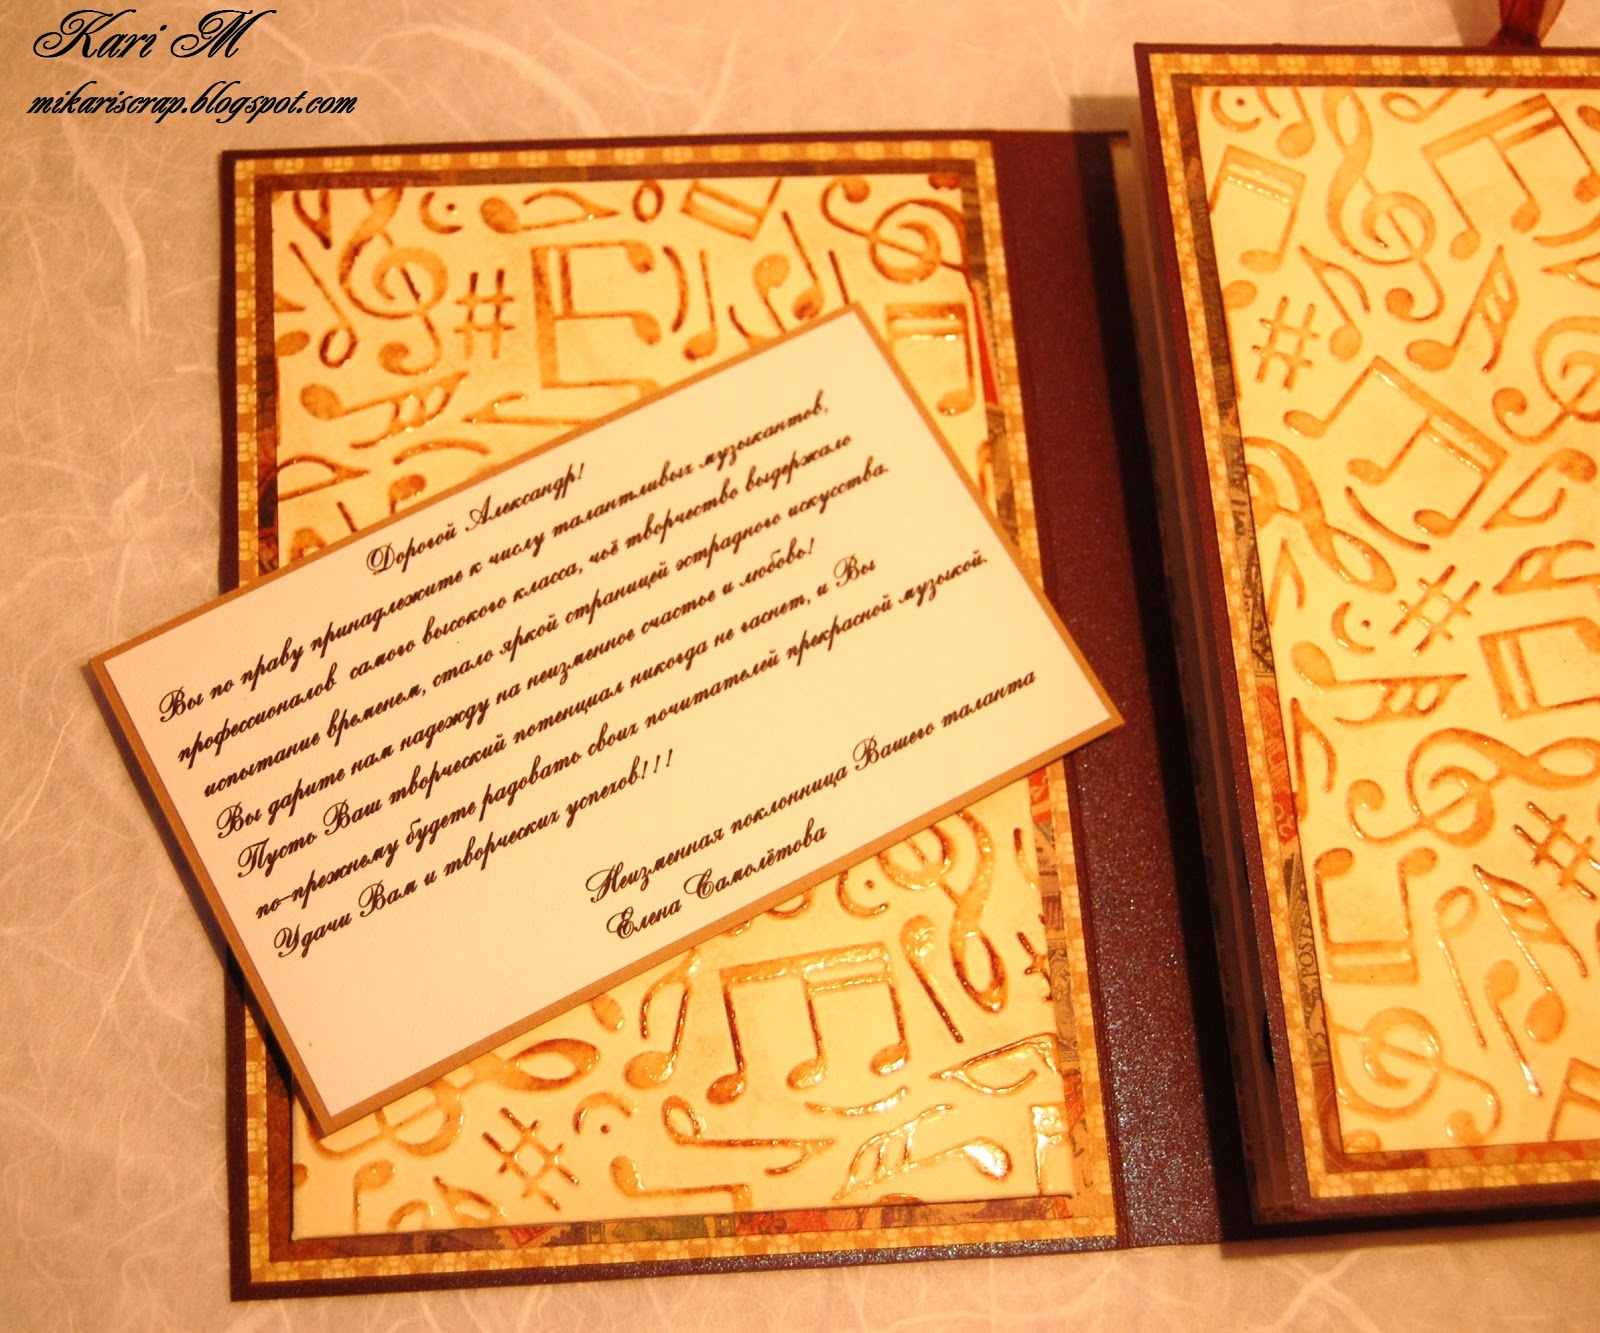 Kari M
mikariscrap.blogspot.com
Дорогой Александр!
Вы по праву принадлежите к числу талантливых музыкантов,
профессионалов самого высокого класса, чьё творчество выдержало
испытание временем, стало яркой страницей эстрадного искусства.
Вы дарите нам надежду на неизменное счастье и любовь!
Пусть Ваш творческий потенциал никогда не гаснет, и Вы
по-прежнему будете радовать своих почитателей прекрасной музыкой.
Удачи Вам и творческих успехов!!!
Неизменная поклонница Вашего таланта
Елена Самолётова